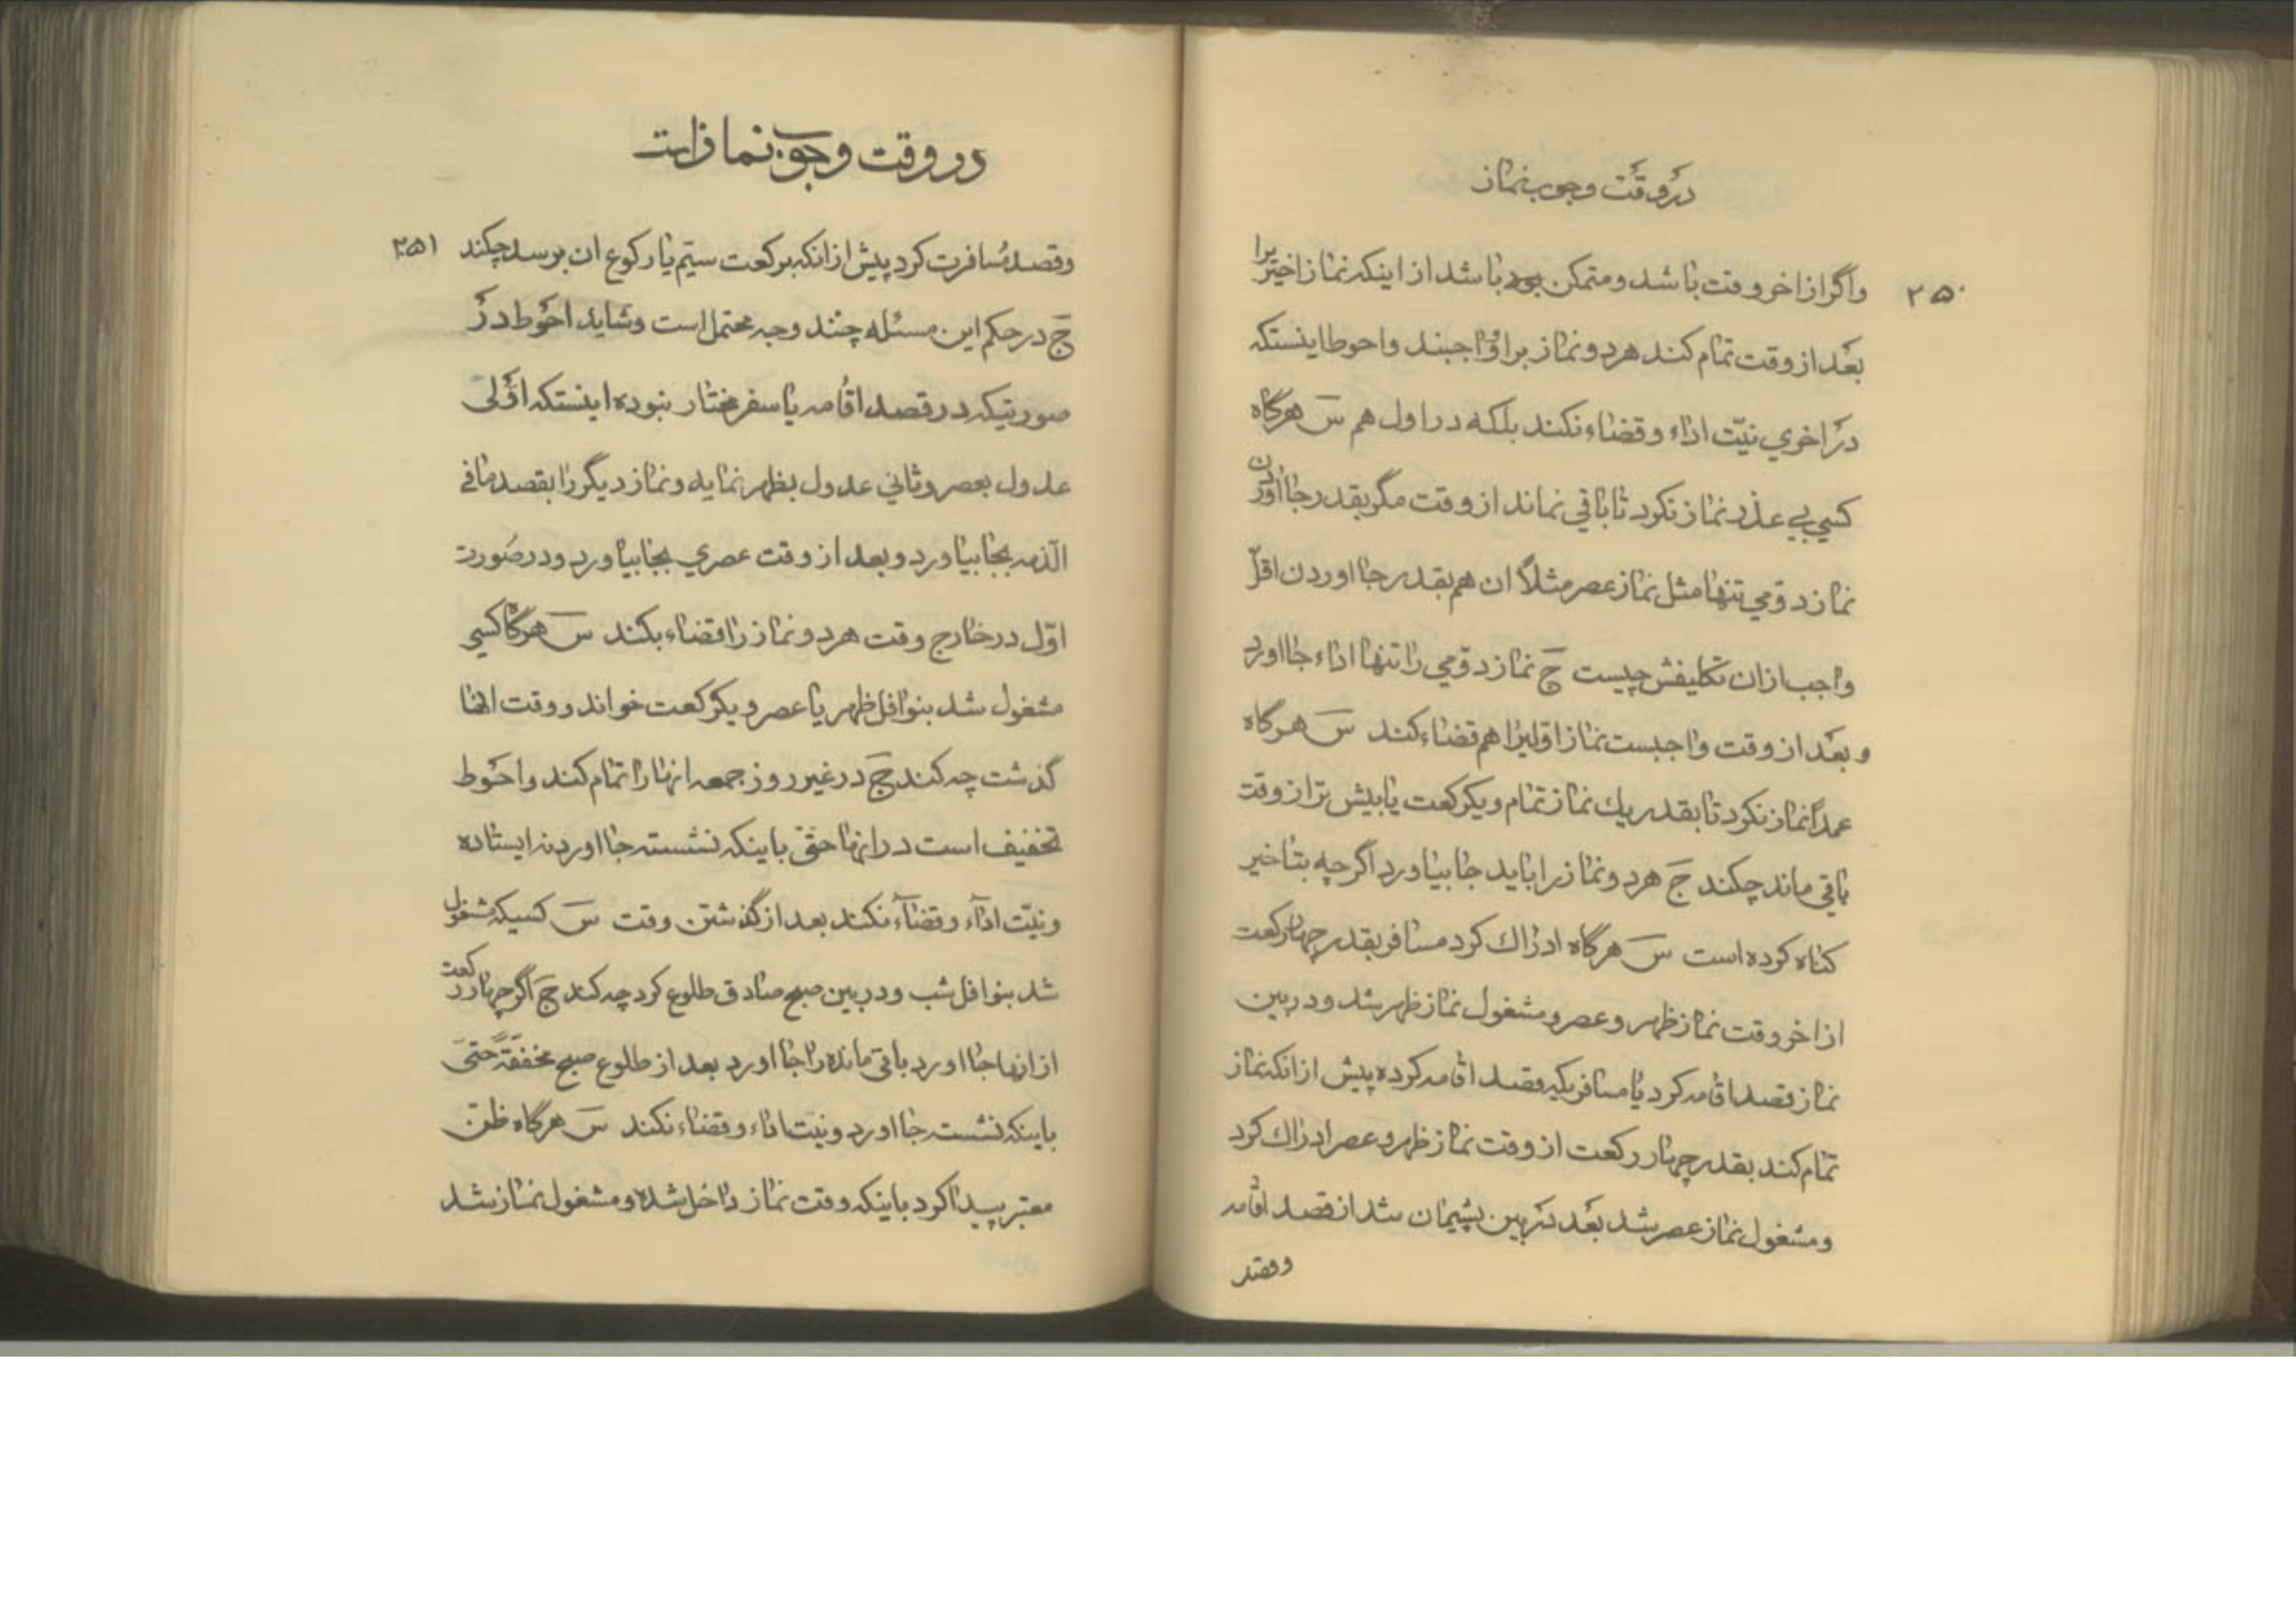 در وقت وجوب نماز
۲۵۰
واگر از اخر وقت باشد و متمکن بود باشد از اینکه نماز اخیر را
بعد از وقت تمام کند هر دو نماز بر او واجبند و احوط اینستکه
در اخری نیّت اداء و قضاء نکند بلکه در اول هم سَ هرگاه
کسی بی عذر نماز نکرد تا باقی نماند از وقت مگر بقدر جا اوردن
نماز دوّمی تنها مثل نماز عصر مثلاً ان هم بقدر جا اوردن اقلّ
واجب ازان تکلیفش چیست جَ نماز دوّمی را تنها اداء جا اورد
و بعد از وقت واجبست نماز اوّلیرا هم قضاء کند سَ هرگاه
عمداً نماز نکرد تا بقدر یك نماز تمام و یکرکعت یا بیش تر از وقت
باقی ماند چکند جَ هر دو نماز را باید جا بیاورد اگر چه بتاخیر
کناه کرده است سَ هرگاه ادراك کرد مسافر بقدر چهار رکعت
از اخر وقت نماز ظهر و عصر و مشغول نماز ظهر شد و در بین
نماز قصد اقامه کرد یا مسافریکه قصد اقامه کرده پیش از انکه نماز
تمام کند بقدر چهار رکعت از وقت نماز ظهر و عصر ادراك کرد
و مشغول نماز عصر شد بعد در بین پشیمان شد از قصد اقامه
وقصد
در وقت وجوب نماز است
۲۵۱
وقصد مسافرت کرد پیش از انکه برکعت سیّم یا رکوع ان برسد چکند
جَ در حکم این مسئله چند وجه محتمل است و شاید احوط در
صورتیکه در قصد اقامه یا سفر مختار نبوده اینستکه اوّلی
عدول بعصر و ثانی عدول بظهر نماید و نماز دیگر را بقصد ما فی
الذمه بجا بیاورد و بعد از وقت عصری بجا بیاورد و در صورت
اوّل در خارج وقت هر دو نماز را قضاء بکند سَ هرگاه کسی
مشغول شد بنوافل ظهر یا عصر و یکرکعت خواند و وقت انها
گذشت چه کند جَ در غیر روز جمعه انها را تمام کند و احوط
تخفیف است در انها حتّی باینکه نشسته جا اورد نه ایستاده
و نیّت اداء و قضاء نکند بعد از گذشتن وقت سَ کسیکه مشغول
شد بنوافل شب و در بین صبح صادق طلوع کرد چه کند جَ اگر چهار رکعت
از انها جا اورد باقی مانده را جا اورد بعد از طلوع صبح مخففّةً حتّی
باینکه نشسته جا اورد و نیّت اداء و قضاء نکند سَ هرگاه ظنّ
معتبر پیدا کرد باینکه وقت نماز داخل شده و مشغول نماز شد